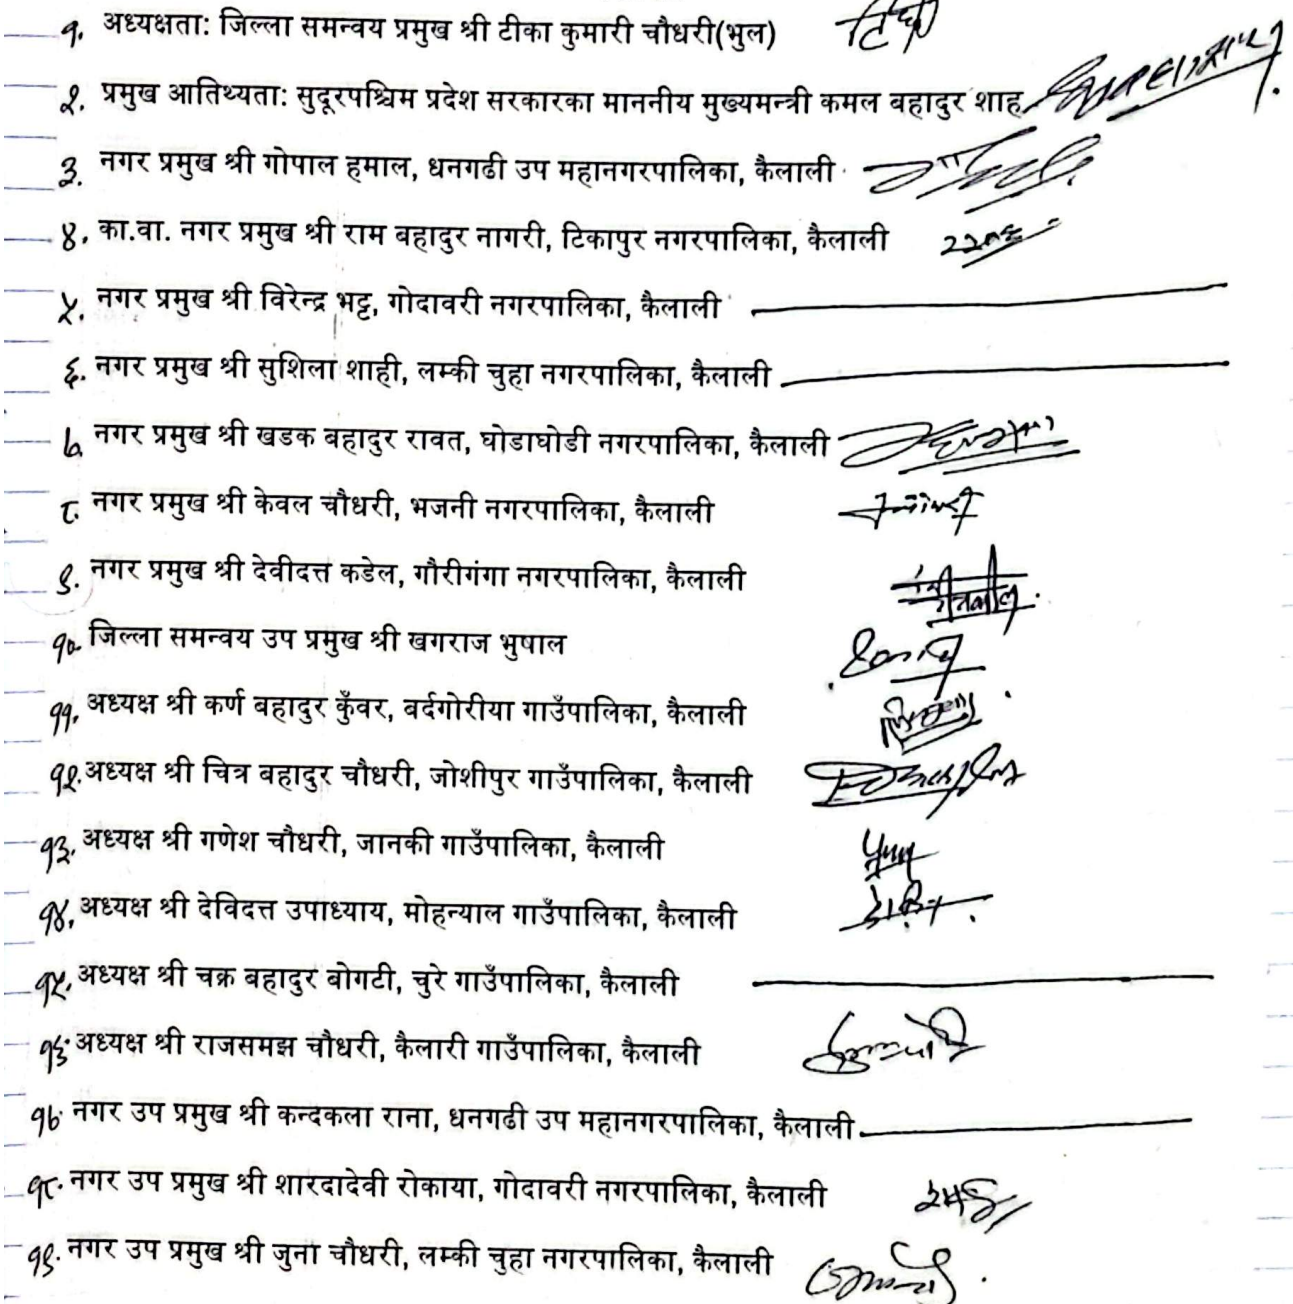 १. अध्यक्षता: जिल्ला समन्वय प्रमुख श्री टीका कुमारी चौधरी(भुल)
२. प्रमुख आतिथ्यता: सुदूरपश्चिम प्रदेश सरकारका माननीय मुख्यमन्त्री कमल बहादुर शाह
३. नगर प्रमुख श्री गोपाल हमाल, धनगढी उप महानगरपालिका, कैलाली
४. का.वा. नगर प्रमुख श्री राम बहादुर नागरी, टिकापुर नगरपालिका, कैलाली
५. नगर प्रमुख श्री विरेन्द्र भट्ट, गोदावरी नगरपालिका, कैलाली
६. नगर प्रमुख श्री सुशिला शाही, लम्की चुहा नगरपालिका, कैलाली
७. नगर प्रमुख श्री खडक बहादुर रावत, घोडाघोडी नगरपालिका, कैलाली
८. नगर प्रमुख श्री केवल चौधरी, भजनी नगरपालिका, कैलाली
९. नगर प्रमुख श्री देवीदत्त कडेल, गौरीगंगा नगरपालिका, कैलाली
१०. जिल्ला समन्वय उप प्रमुख श्री खगराज भुषाल
११. अध्यक्ष श्री कर्ण बहादुर कुँवर, बर्दगोरीया गाउँपालिका, कैलाली
१२. अध्यक्ष श्री चित्र बहादुर चौधरी, जोशीपुर गाउँपालिका, कैलाली
१३. अध्यक्ष श्री गणेश चौधरी, जानकी गाउँपालिका, कैलाली
१४. अध्यक्ष श्री देविदत्त उपाध्याय, मोहन्याल गाउँपालिका, कैलाली
१५. अध्यक्ष श्री चक्र बहादुर बोगटी, चुरे गाउँपालिका, कैलाली
१६. अध्यक्ष श्री राजसमझ चौधरी, कैलारी गाउँपालिका, कैलाली
१७. नगर उप प्रमुख श्री कन्दकला राना, धनगढी उप महानगरपालिका, कैलाली
१८. नगर उप प्रमुख श्री शारदादेवी रोकाया, गोदावरी नगरपालिका, कैलाली
१९. नगर उप प्रमुख श्री जुना चौधरी, लम्की चुहा नगरपालिका, कैलाली